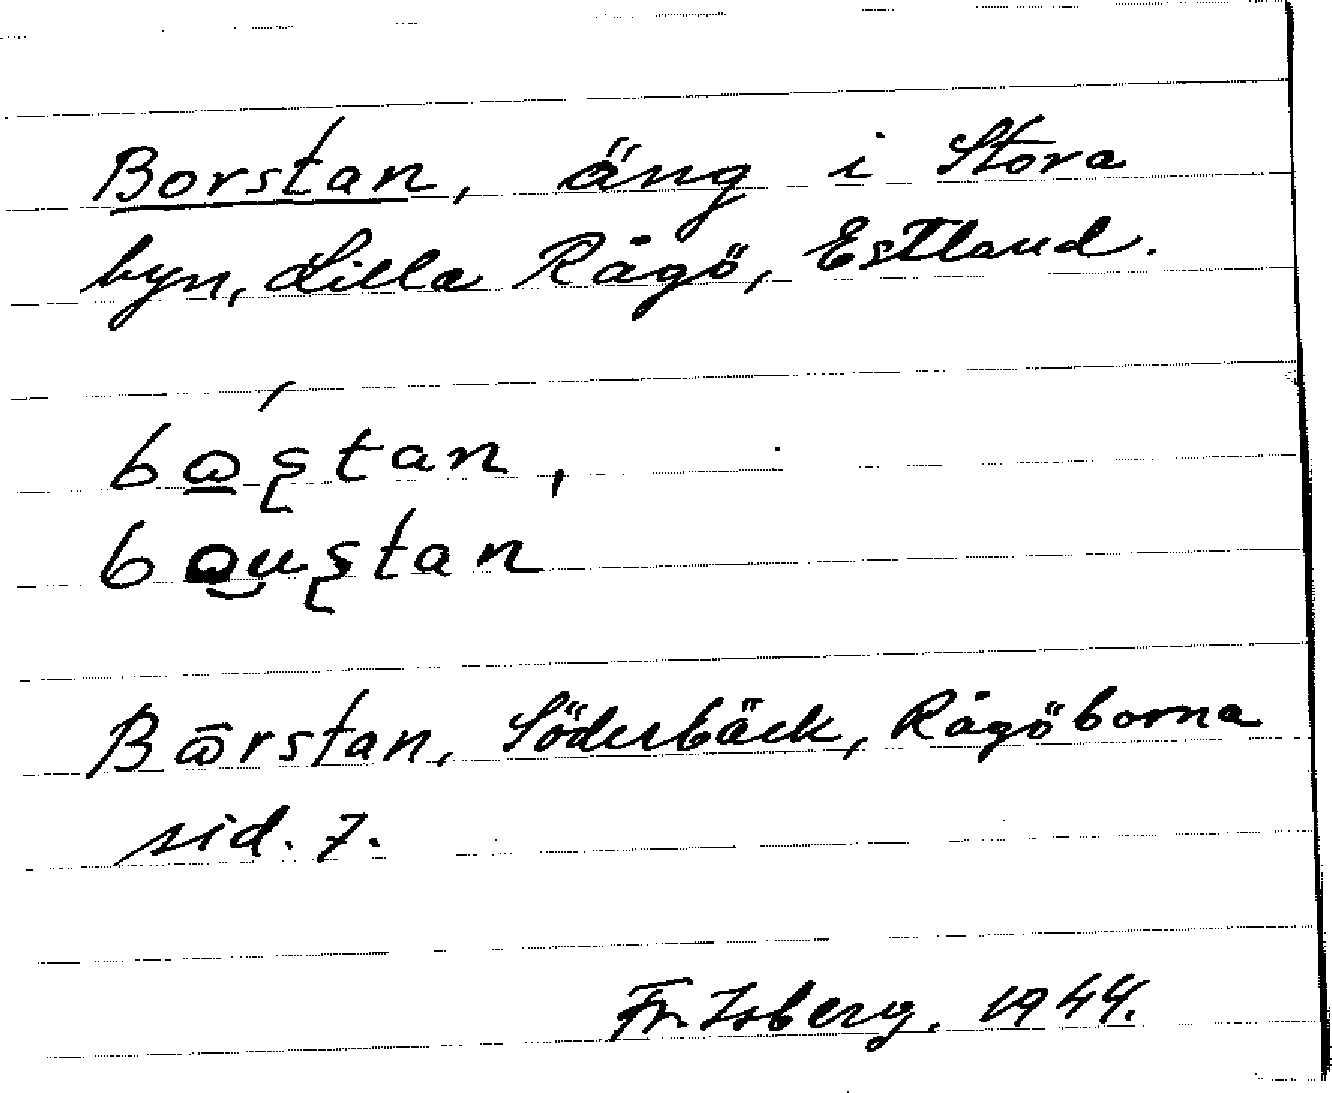 Borstan, äng i Stora
byn, Lilla Rågö, Estland.
bo̲ʂ́tan,
bou̯ʂtan
Bōrstan, Söderbäck, Rågöborna
sid. 7.
Fr. Isberg. 1944.